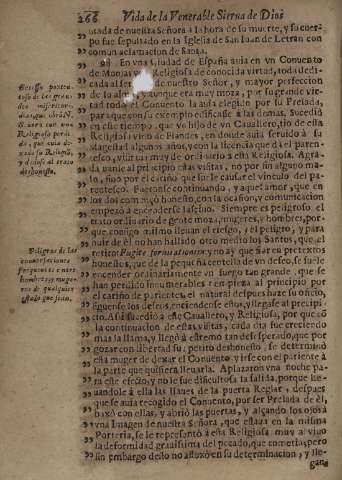 266 Vida de la Venerable Sierva de Dios
sitada de nuestra Señora a la hora de su muerte, y su cuerpo
fue sepultado en la Iglesia de San Juan de Letran con
comun aclamacion de Santa.
98 En vna Ciudad de España auia en vn Conuento
de Monjas vna Religiosa de conocida virtud, toda dedicada
al ser de nuestro Señor, y mayor perfeccion
de su alma, y aunque era muy moça, por su grande virtud
todo el Conuento la auia elegido por su Prelada,
para que con su exemplo edificasse a las demas. Sucediò
en este tiempo, que vn hijo de vn Cauallero, tio de ella
Religiosa vino de Flandes, en donde auia seruido à su
Magestad algunos años, y con la licencia que dà el parentesco,
visitaua muy de ordinario a esta Religiosa. Agradauanle
al principio estas visitas, no por fin alguno malo,
sino por el cariño que suele causar el vinculo del parentesco.
Fueronse continuando, y aquel amor, que en
los dos començò honesto, con la ocasion, y comunicacion
empezò à encenderse lasciuo. Siempre es peligroso el
trato ordinario de gente moça, mugeres, y hombres, porque
consigo mismo lleuan el riesgo, y el peligro, y para
huir de èl no han hallado otro medio los Santos, que el
retiro: Fugite fornicationem; y no ay que fiar en pretextos
honestos, que de la pequeña centella de vn deseo, se suele
encender ordinariamente vn fuego tan grande, que se
han perdido innumerables: empieza al principio por
el cariño de parientes, el natural despues haze su oficio,
siguense los deseos, enciendense estos, y llegase al precipicio.
Assi sucediò a este Cauallero, y Religiosa, por que con
la continuacion de estas visitas, cada dia fue creciendo
mas la llama, y llegò à estremo tan desesperado, que por
gozar con libertad su apetito deshonesto, se determinò
esta muger de dexar el Conuento, y irse con el pariente à
la parte que quisiera lleuarla. Aplazaron vna noche para
este efecto, y no le fue dificultosa la salida, porque lleuandole
à ella las llaues de la puerta Reglar, despues
que se auia recogido el Conuento, por ser Prelada de èl,
baxò con ellas, y abriò las puertas, y alçando los ojos à
vna Imagen de nuestra Señora, que estaua en la misma
Porteria, se le representò a esta Religiosa muy al viuo
la deformidad grauissima del pecado, que cometia; pero
sin embargo desto no afloxò en su determinacion; y llegan-
gan-
Peligros de las
conuersaciones
frequentes entre
hombres, y mugeres
de qualquier
estado que sean.